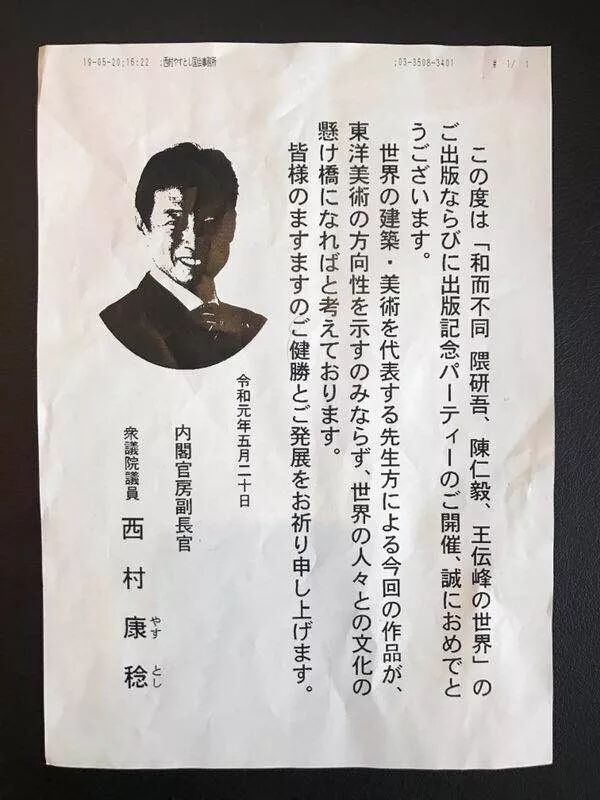 19-05-20;16:22 ;西村やすとし国会事務所 ;03-3508-3401 # 1/ 1
この度は「和而不同 隈研吾、陳仁毅、王伝峰の世界」の
ご出版ならびに出版記念パーティーのご開催、誠におめでと
うございます。
世界の建築・美術を代表する先生方による今回の作品が、
東洋美術の方向性を示すのみならず、世界の人々との文化の
懸け橋になればと考えております。
皆様のますますのご健勝とご発展をお祈り申し上げます。
令和元年五月二十日
内閣官房副長官
衆議院議員 西村康稔
やす とし